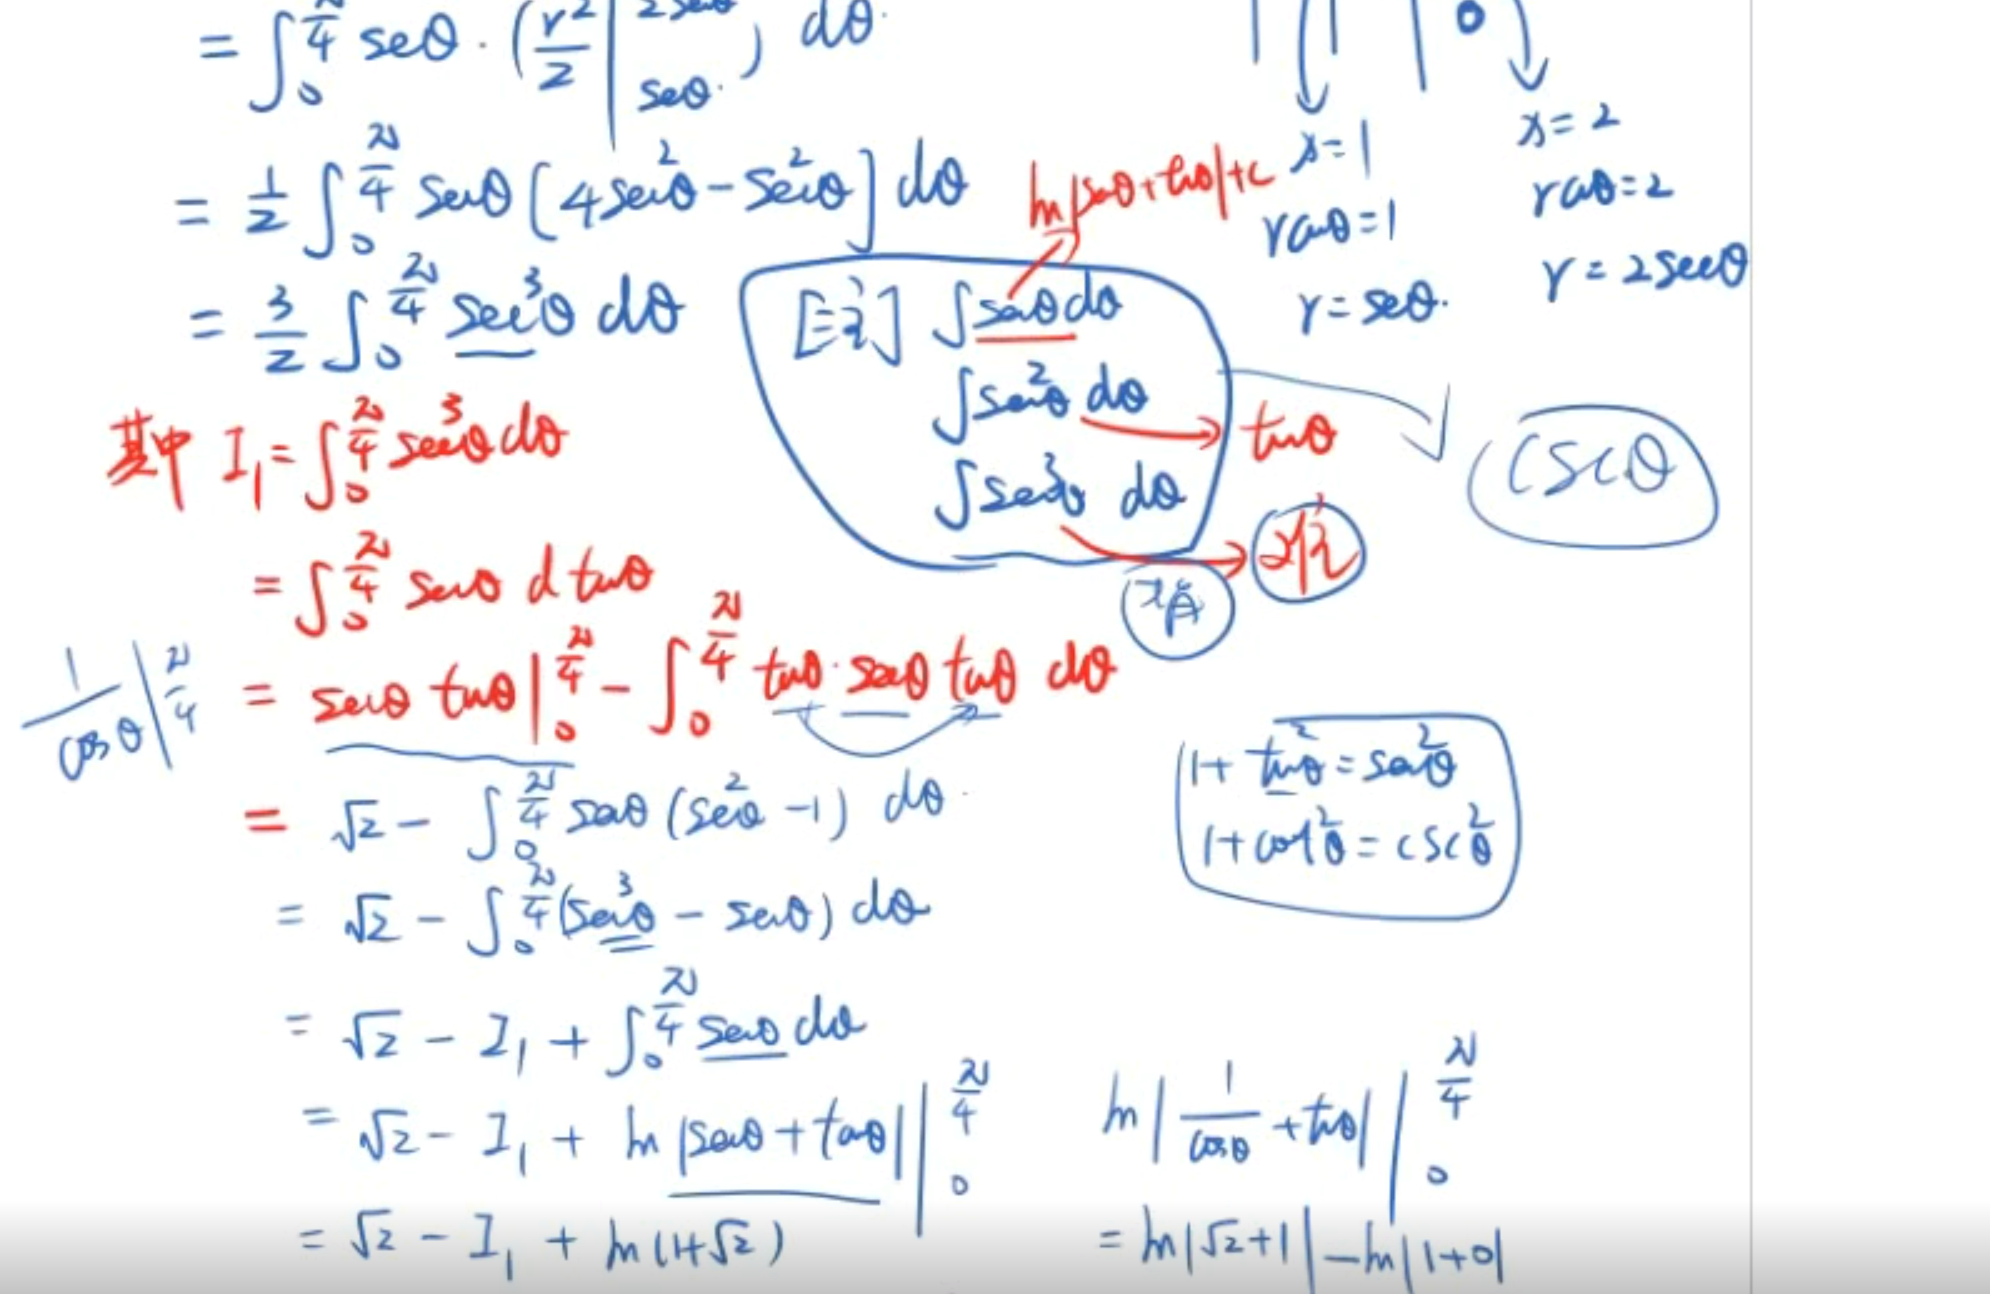 = ∫₀^{π/4} secθ · (r²/2 |_{secθ}^{2secθ}) dθ
= 1/2 ∫₀^{π/4} secθ [4sec²θ - sec²θ] dθ
= 3/2 ∫₀^{π/4} sec³θ dθ
其中 I₁ = ∫₀^{π/4} sec³θ dθ
= ∫₀^{π/4} secθ d tanθ
1/cosθ |^{π/4}
= secθ tanθ |₀^{π/4} - ∫₀^{π/4} tanθ · secθ tanθ dθ
= √2 - ∫₀^{π/4} secθ (sec²θ - 1) dθ
= √2 - ∫₀^{π/4} (sec³θ - secθ) dθ
= √2 - I₁ + ∫₀^{π/4} secθ dθ
= √2 - I₁ + ln |secθ + tanθ| |₀^{π/4}
= √2 - I₁ + ln(1+√2)
[注] ∫secθ dθ
ln|secθ + tanθ| + c
∫sec²θ dθ
tanθ
∫sec³θ dθ
x=1
rcosθ=1
r=secθ
0
x=2
rcosθ=2
r=2secθ
cscθ
1+tan²θ=sec²θ
1+cot²θ=csc²θ
ln|1/cosθ + tanθ| |₀^{π/4}
= ln|√2+1| - ln|1+0|